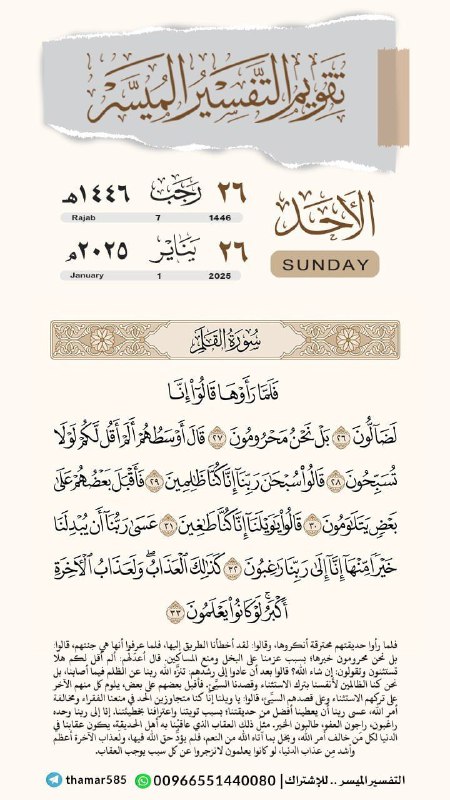 تقويم التفسير الميسر
الأحد
SUNDAY
٢٦ رجب ١٤٤٦هـ
Rajab 7 1446
٢٦ يناير ٢٠٢٥م
January 1 2025
سُورَةُ القَلَمِ
فَلَمَّا رَأَوْهَا قَالُوٓا۟ إِنَّا
لَضَآلُّونَ ٢٦ بَلْ نَحْنُ مَحْرُومُونَ ٢٧ قَالَ أَوْسَطُهُمْ أَلَمْ أَقُل لَّكُمْ لَوْلَا
تُسَبِّحُونَ ٢٨ قَالُوا۟ سُبْحَٰنَ رَبِّنَآ إِنَّا كُنَّا ظَٰلِمِينَ ٢٩ فَأَقْبَلَ بَعْضُهُمْ عَلَىٰ
بَعْضٍ يَتَلَٰوَمُونَ ٣٠ قَالُوا۟ يَٰوَيْلَنَآ إِنَّا كُنَّا طَٰغِينَ ٣١ عَسَىٰ رَبُّنَآ أَن يُبْدِلَنَا
خَيْرًا مِّنْهَآ إِنَّآ إِلَىٰ رَبِّنَا رَٰغِبُونَ ٣٢ كَذَٰلِكَ ٱلْعَذَابُ ۖ وَلَعَذَابُ ٱلْءَاخِرَةِ
أَكْبَرُ ۚ لَوْ كَانُوا۟ يَعْلَمُونَ ٣٣
فلما رأوا حديقتهم محترقة أنكروها، وقالوا: لقد أخطأنا الطريق إليها، فلما عرفوا أنها هي جنتهم، قالوا:
بل نحن محرومون خيرها؛ بسبب عزمنا على البخل ومنع المساكين. قال أعدلهم: ألم أقل لكم هلا
تستثنون وتقولون: إن شاء الله؟ قالوا بعد أن عادوا إلى رشدهم: تنزَّه الله ربنا عن الظلم فيما أصابنا، بل
نحن كنا الظالمين لأنفسنا بترك الاستثناء وقصدنا السيِّئ. فأقبل بعضهم على بعض، يلوم كل منهم الآخر
على تركهم الاستثناء وعلى قصدهم السيِّئ، قالوا: يا ويلنا إنا كنا متجاوزين الحد في منعنا الفقراء ومخالفة
أمر الله، عسى ربنا أن يعطينا أفضل من حديقتنا؛ بسبب توبتنا واعترافنا بخطيئتنا. إنا إلى ربنا وحده
راغبون، راجون العفو، طالبون الخير. مثل ذلك العقاب الذي عاقبنا به أهل الحديقة، يكون عقابنا في
الدنيا لكل من خالف أمر الله، وبخل بما آتاه الله من النعم، فلم يؤدِّ حق الله فيها، ولعذاب الآخرة أعظم
وأشد مِن عذاب الدنيا، لو كانوا يعلمون لانزجروا عن كل سبب يوجب العقاب.
التفسير الميسر .. للإشتراك | 00966551440080 thamar585